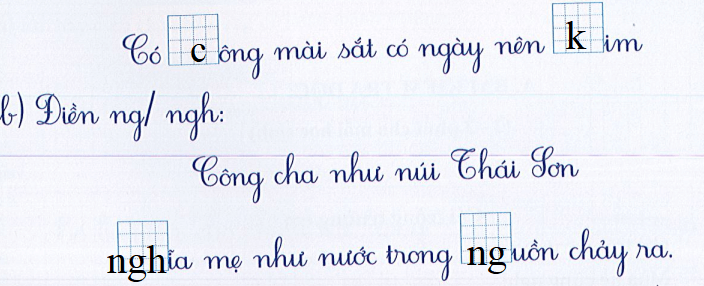 Có công mài sắt có ngày nên kim
b) Điền ng/ ngh:
Công cha như núi Thái Sơn
nghĩa mẹ như nước trong nguồn chảy ra.